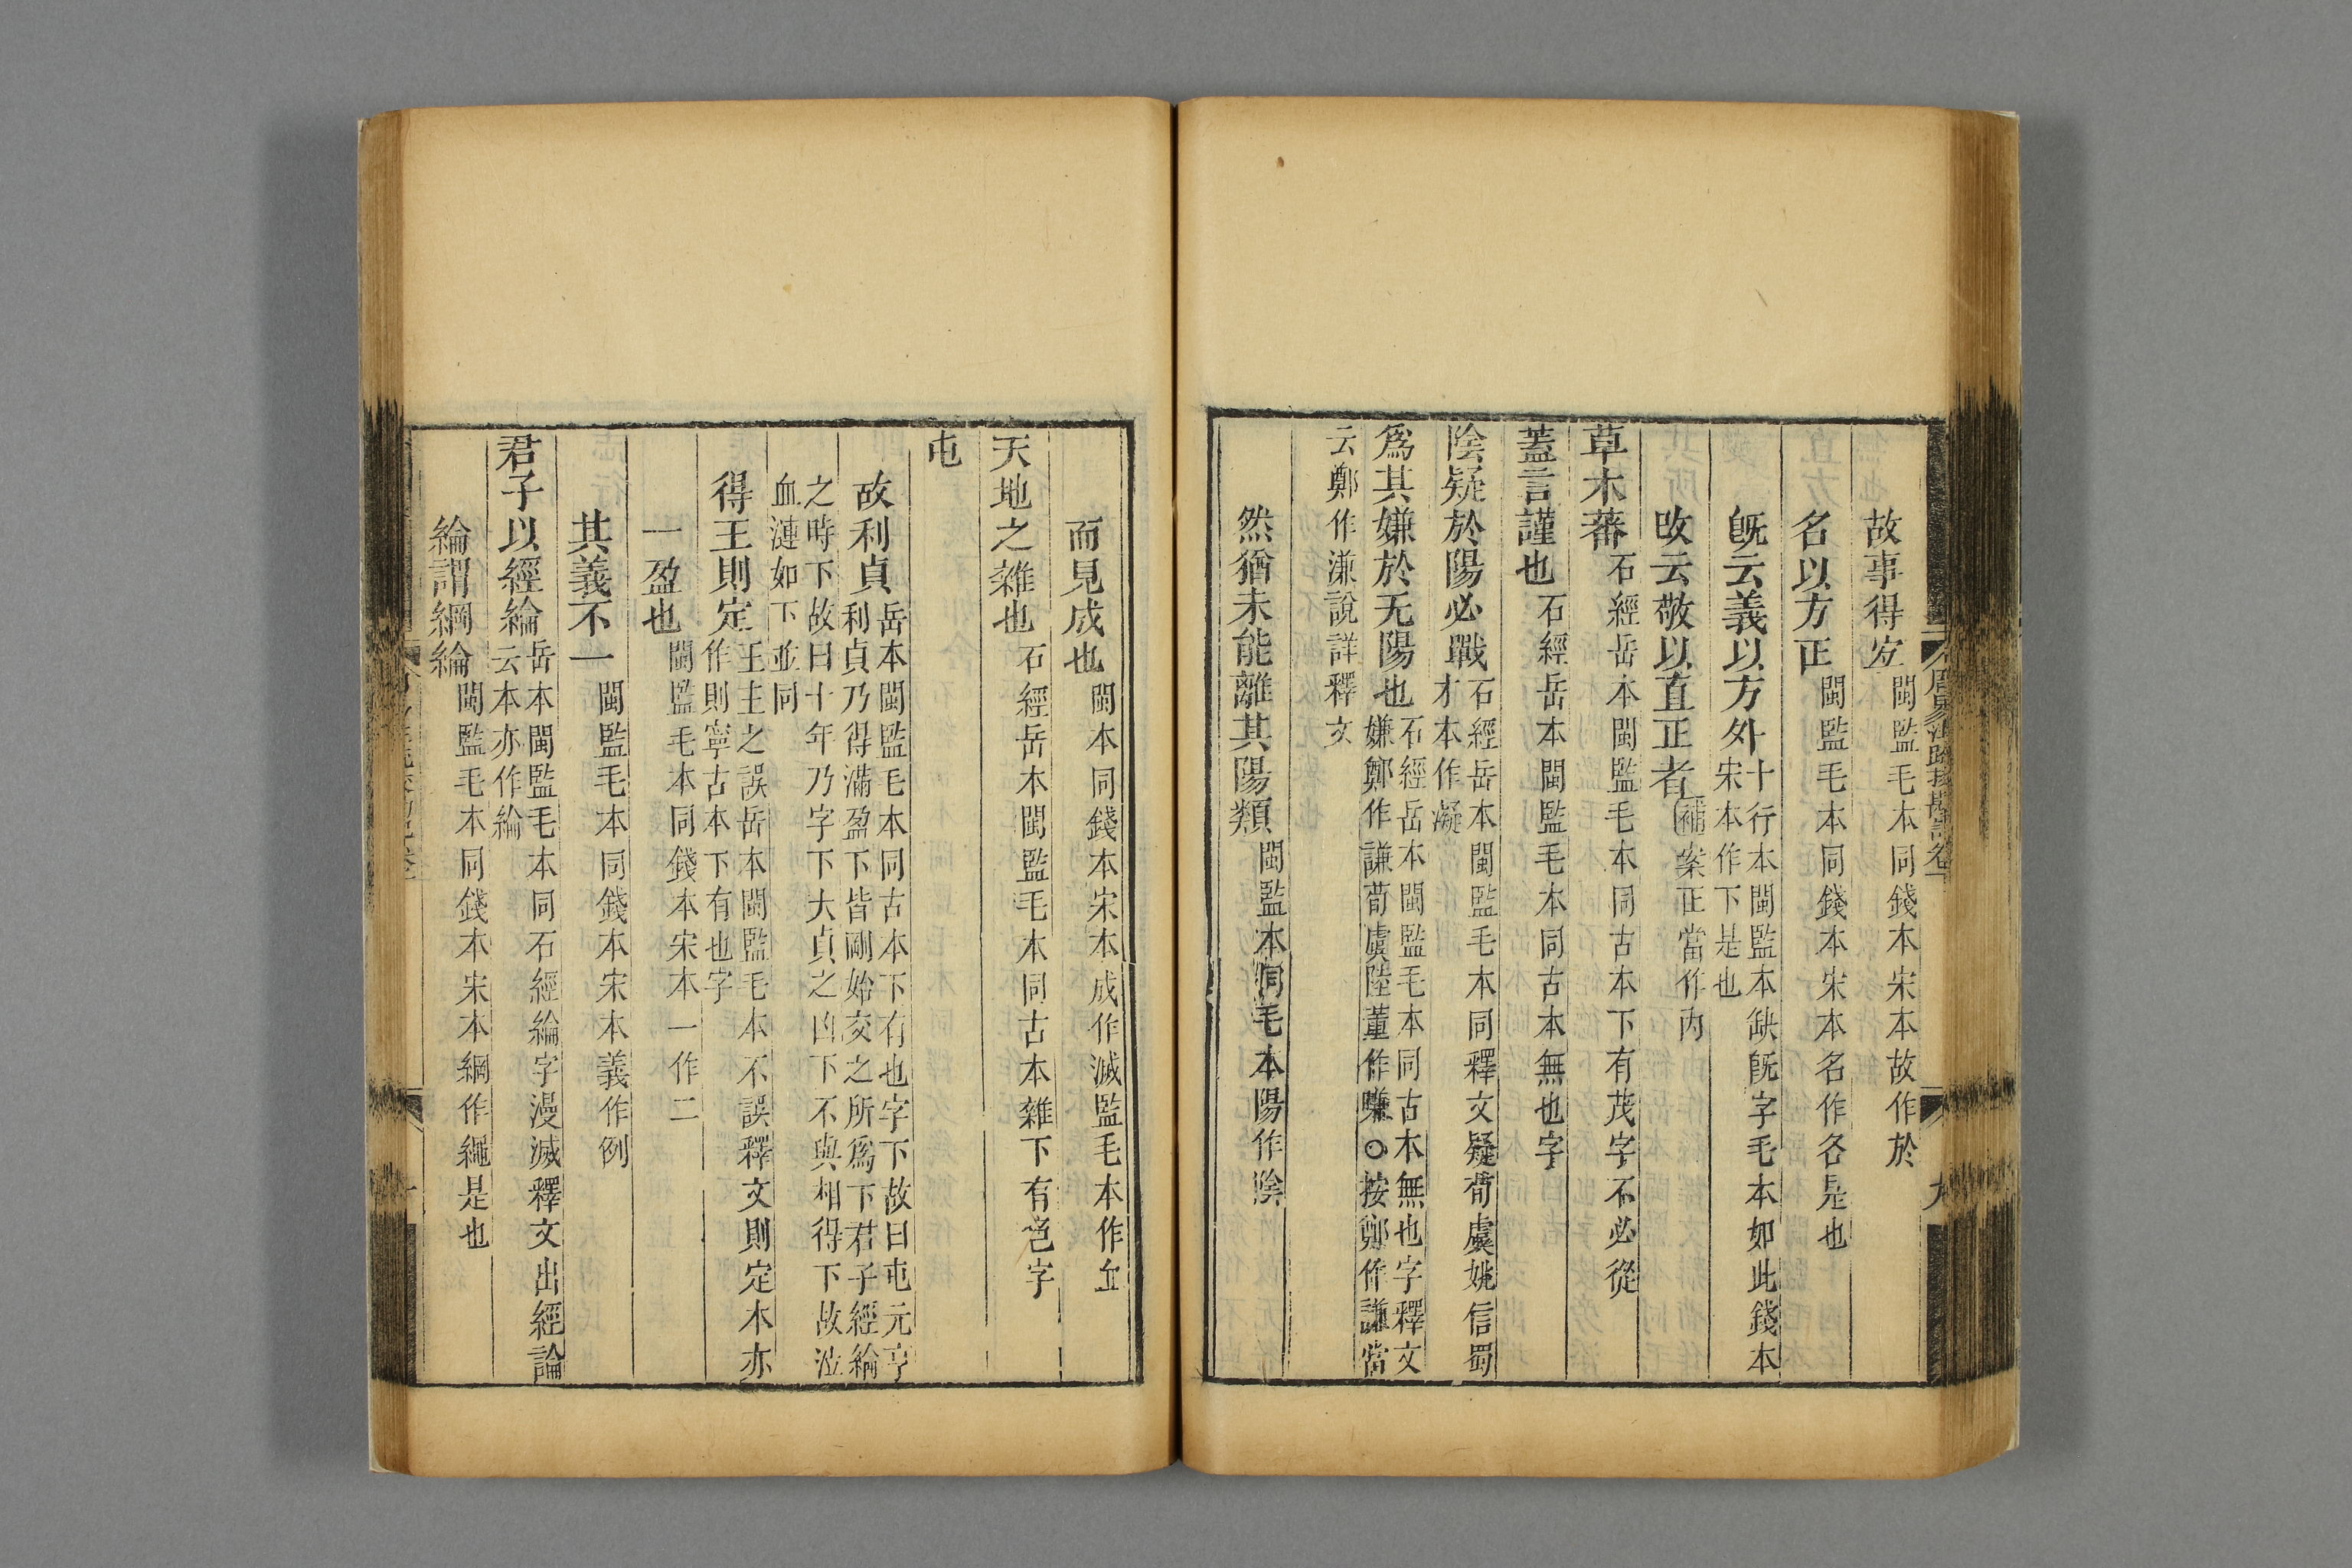 故事得宐閩監毛本同錢本宋本故作於
名以方正閩監毛本同錢本宋本名作各是也
旣云義以方外十行本閩監本缺旣字毛本如此錢本宋本作下是也
改云敬以直正者補案正當作内
草木蕃石經岳本閩監毛本同古本下有茂字不必從
蓋言謹也石經岳本閩監毛本同古本無也字
陰疑於陽必戰石經岳本閩監毛本同釋文疑荀虞姚信蜀才本作凝
爲其嫌於无陽也石經岳本閩監毛本同古本無也字釋文嫌鄭作謙荀虞陸董作嗛○按鄭作謙當
云鄭作溓說詳釋文
然猶未能離其陽類閩監本同毛本陽作陰
而見成也閩本同錢本宋本成作滅監毛本作血
天地之雜也石經岳本閩監毛本同古本雜下有色字
屯
故利貞岳本閩監毛本同古本下有也字下故曰屯元亨利貞乃得滿盈下皆剛始交之所爲下君子經綸
之時下故曰十年乃字下大貞之凶下不與相得下故泣血漣如下並同
得王則定王主之誤岳本閩監毛本不誤釋文則定本亦作則寧古本下有也字
一盈也閩監毛本同錢本宋本一作二
其義不一閩監毛本同錢本宋本義作例
君子以經綸岳本閩監毛本同石經綸字漫滅釋文出經論云本亦作綸
綸謂綱綸閩監毛本同錢本宋本綱作繩是也